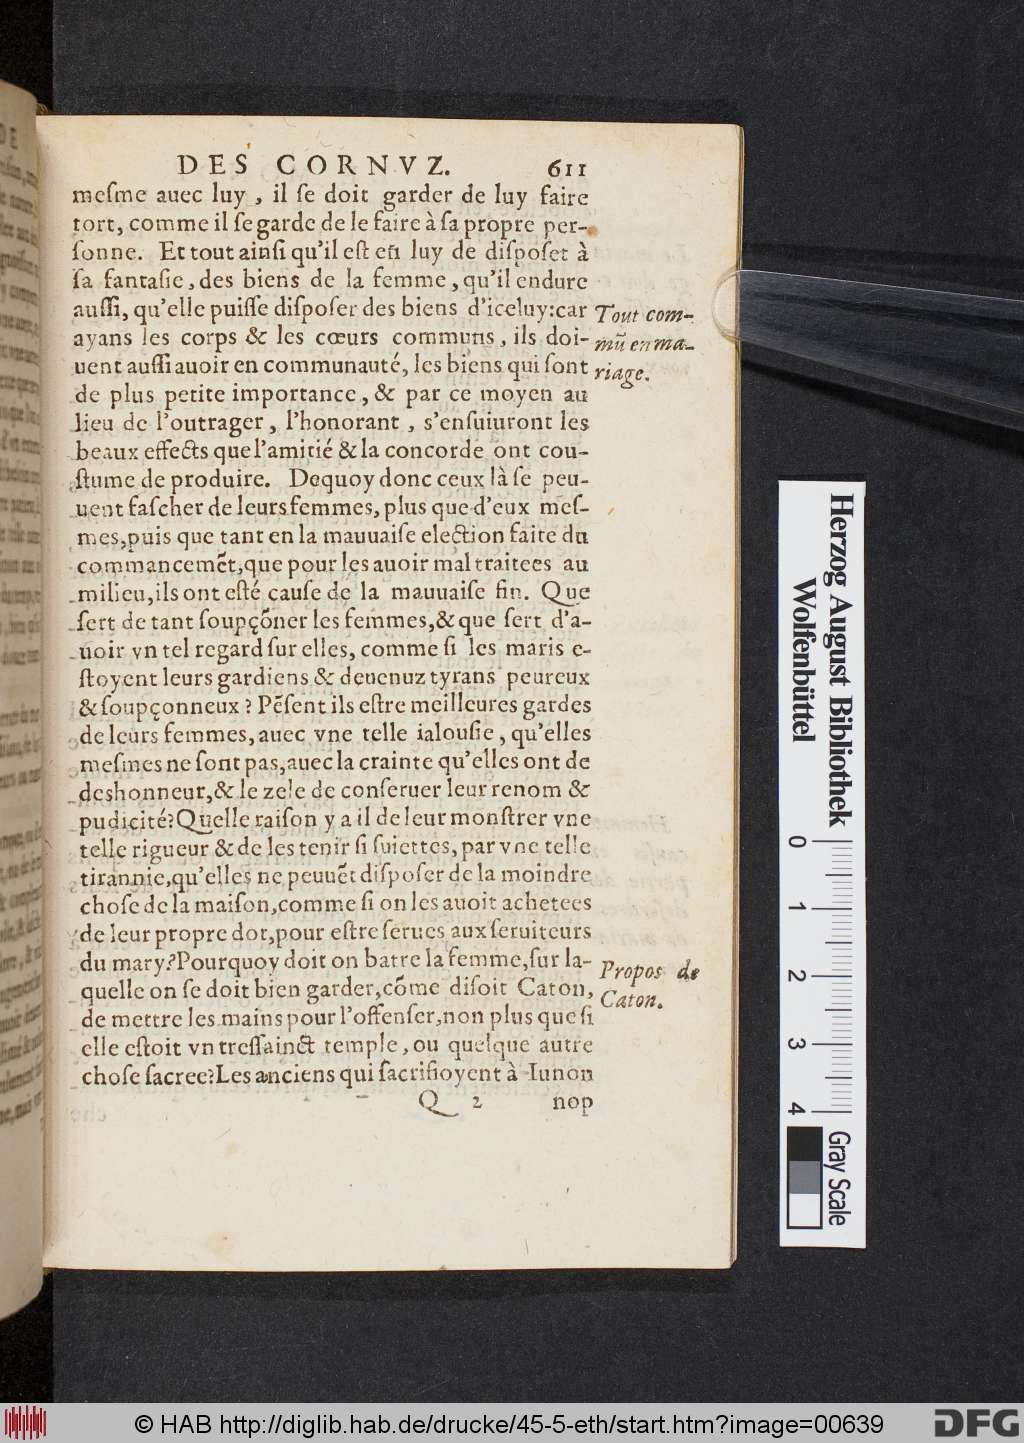 DES CORNVZ. 611
meſme auec luy, il ſe doit garder de luy faire
tort, comme il ſe garde de le faire à ſa propre per-
ſonne. Et tout ainſi qu'il eſt en luy de diſpoſer à
ſa fantaſie, des biens de la femme, qu'il endure
auſſi, qu'elle puiſſe diſpoſer des biens d'iceluy: car
ayans les corps & les cœurs communs, ils doi-
uent auſſi auoir en communauté, les biens qui ſont
de plus petite importance, & par ce moyen au
lieu de l'outrager, l'honorant, s'enſuiuront les
beaux effects que l'amitié & la concorde ont cou-
ſtume de produire. Dequoy donc ceux là ſe peu-
uent faſcher de leurs femmes, plus que d'eux meſ-
mes, puis que tant en la mauuaiſe election faite du
commancemẽt, que pour les auoir mal traitees au
milieu, ils ont eſté cauſe de la mauuaiſe fin. Que
ſert de tant ſoupçõner les femmes, & que ſert d'a-
uoir vn tel regard ſur elles, comme ſi les maris e-
ſtoyent leurs gardiens & deuenuz tyrans peureux
& ſoupçonneux? Pẽſent ils eſtre meilleures gardes
de leurs femmes, auec vne telle ialouſie, qu'elles
meſmes ne ſont pas, auec la crainte qu'elles ont de
deshonneur, & le zele de conſeruer leur renom &
pudicité? Quelle raiſon y a il de leur monſtrer vne
telle rigueur & de les tenir ſi ſuiettes, par vne telle
tirannie, qu'elles ne peuuẽt diſpoſer de la moindre
choſe de la maiſon, comme ſi on les auoit achetees
de leur propre dot, pour eſtre ſerues aux ſeruiteurs
du mary? Pourquoy doit on batre la femme, ſur la-
quelle on ſe doit bien garder, cõme diſoit Caton,
de mettre les mains pour l'offenſer, non plus que ſi
elle eſtoit vn treſſainct temple, ou quelque autre
choſe ſacree? Les anciens qui ſacrifioyent à Iunon
Q 2 nop
Tout com-
mũ en ma-
riage.
Propos de
Caton.
Herzog August Bibliothek
Wolfenbüttel
0 1 2 3 4
Gray Scale
© HAB http://diglib.hab.de/drucke/45-5-eth/start.htm?image=00639
DFG